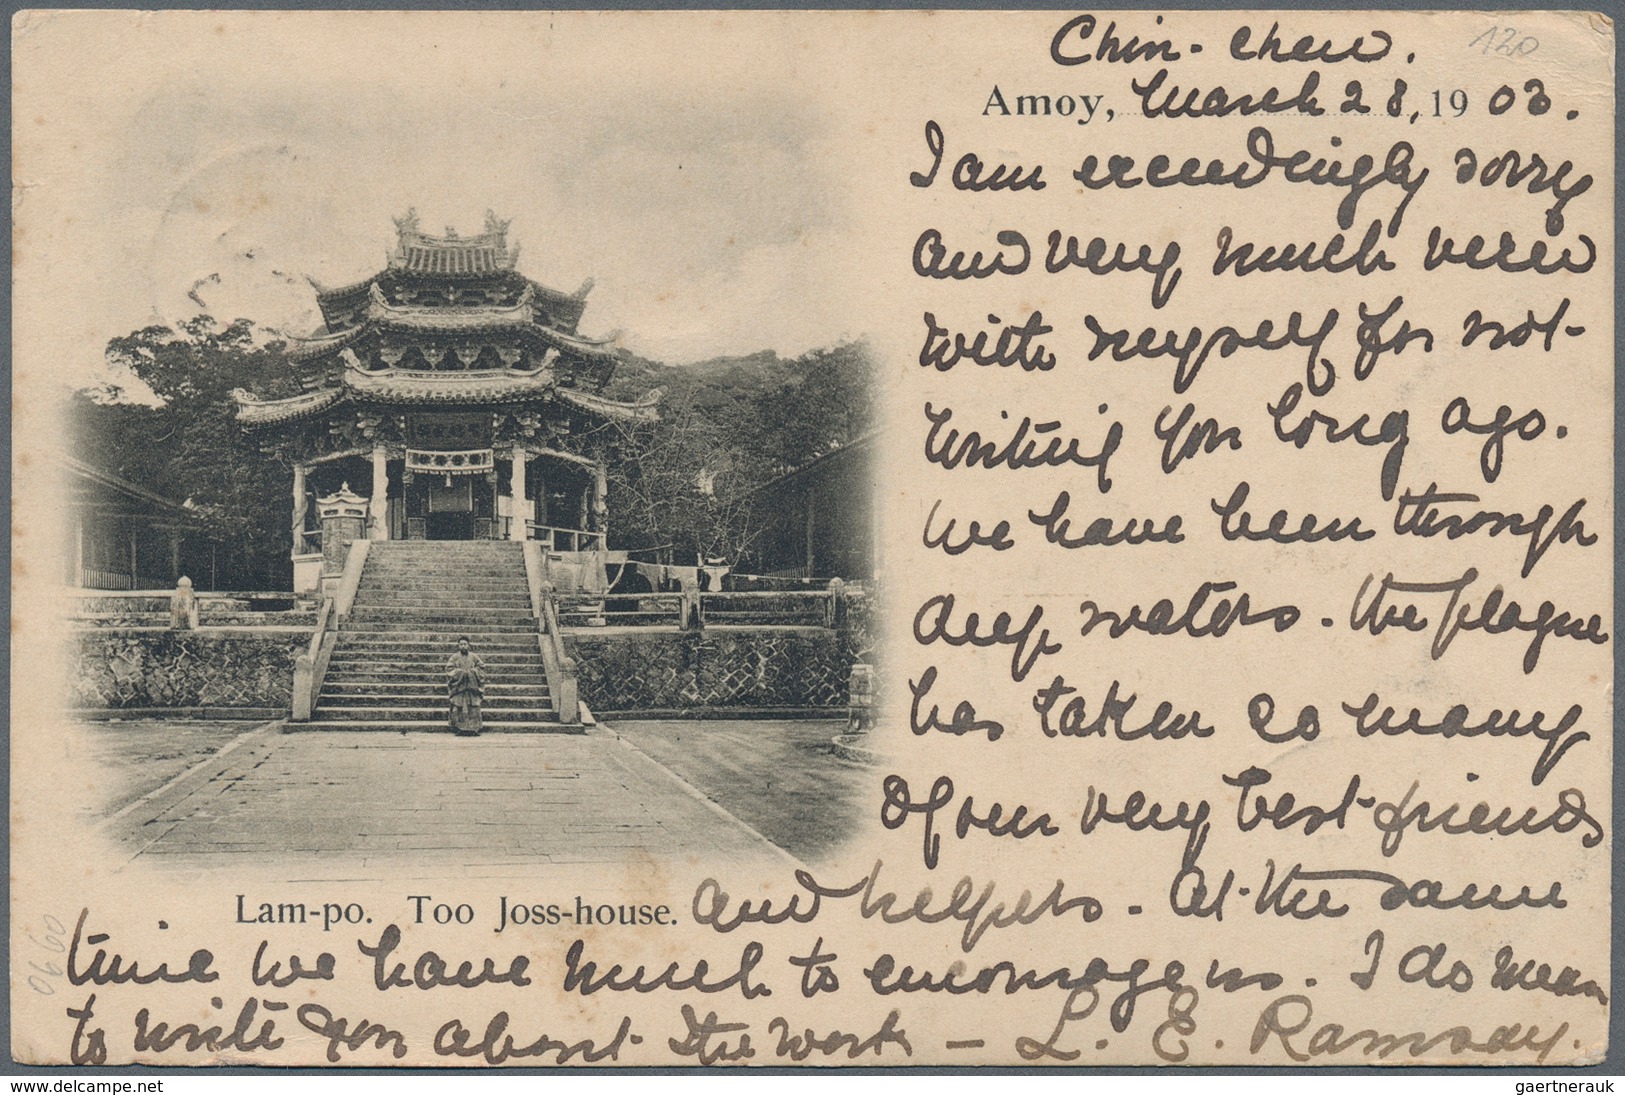 Chin-chew.
120
Amoy, March 28, 1903.
I am exceedingly sorry
and very much vexed
with myself for not
writing you long ago.
We have been through
deep waters. The plague
has taken so many
of our very best friends
Lam-po. Too Joss-house. and helpers. At the same
time we have much to encourage us. I do mean
to write you about the work — L. E. Ramsay.
gaertnerauk